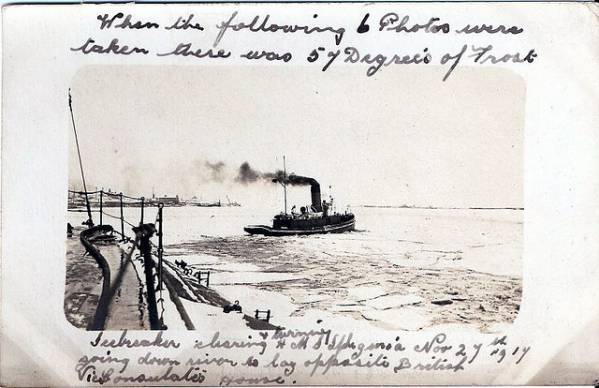 When the following 6 Photos were
taken there was 57 Degree's of Frost
Icebreaker clearing & turning H.M.S Iphgenia Nov 27th 1917
going down river to lay opposite British
Vic Consulate's House.